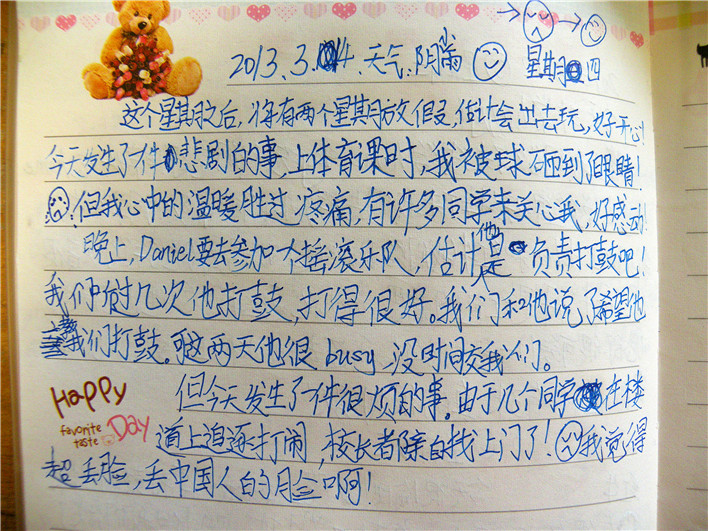 2013.3.14.天气.阴 星期四
这个星期之后,将有两个星期放假,估计会出去玩,好开心!
今天发生了件悲剧的事,上体育课时,我被球砸到了眼睛!
但我心中的温暖胜过疼痛,有许多同学来关心我,好感动!
晚上,Daniel要去参加个摇滚乐队,估计他是负责打鼓吧!
我们听过几次他打鼓,打得很好。我们和他说了希望他
教我们打鼓。可这两天他很busy 没时间教我们。
Happy
favorite
taste
Day
但今天发生了一件很烦的事。由于几个同学在楼
道上追逐打闹,校长都亲自找上门了!我觉得
超丢脸,丢中国人的脸啊!